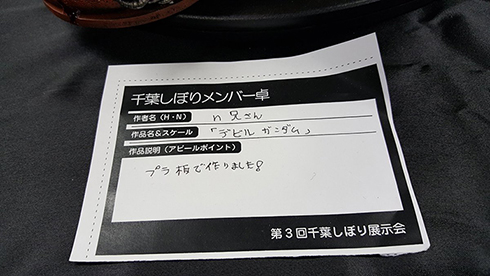 千葉しぼりメンバー卓
作者名(H・N) n兄さん
作品名&スケール 「デビルガンダム」
作品説明(アピールポイント)
プラ板で作りました!
第3回千葉しぼり展示会